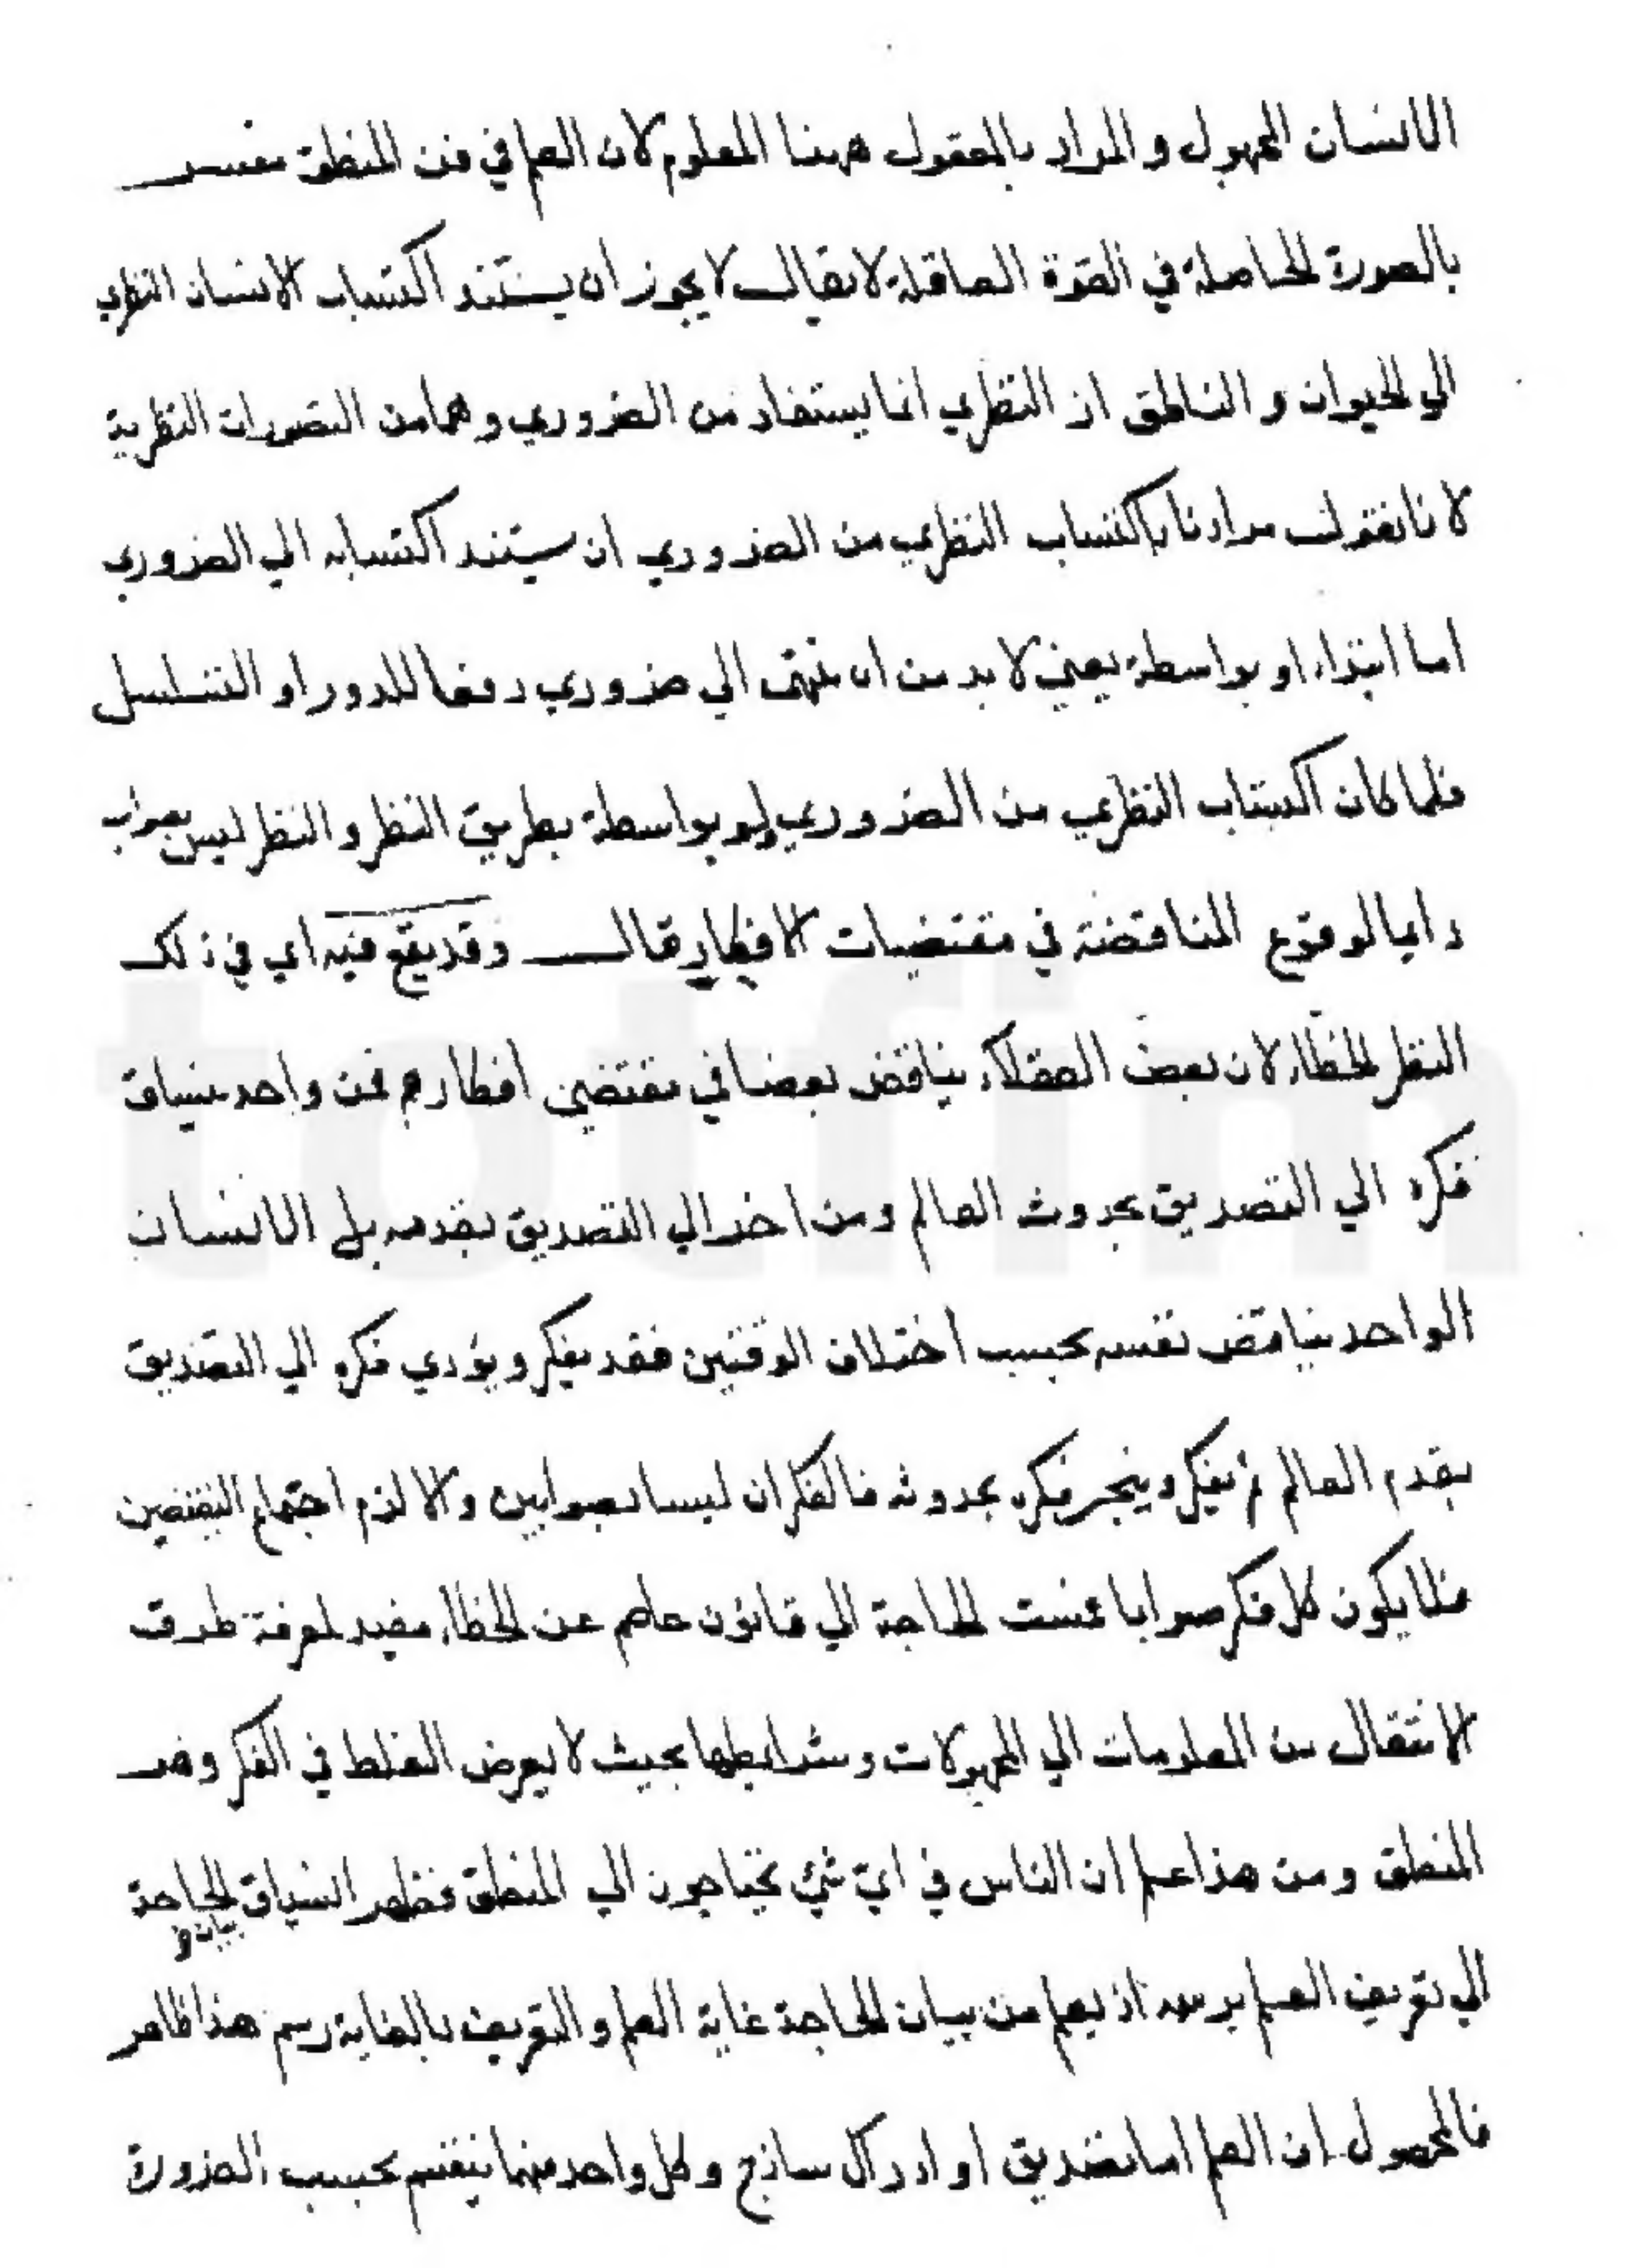 الانسان المجهول والمراد بالمعقول ههنا المعلوم لان العلم في فن المنطق مفسر
بالصورة الحاصلة في القوة العاقلة لا يقال لا يجوز ان يستند اكتساب الانسان النظري
الي الحيوان والناطق اذ النظري انما يستفاد من الضروري وهما من التصورات النظرية
لانا نقول مرادنا باكتساب النظري من الضروري ان يستند اكتسابه الي الضروري
اما ابتداء او بواسطة يعني لا بد من ان ينتهي الي ضروري دفعا للدور او التسلسل
فلما كان اكتساب النظري من الضروري ولو بواسطة بطريق النظر والنظر ليس بصواب
دايما لوقوع المناقضة في مقتضيات الافكار قال وقد يقع فيه اي في ذلك
النظر الخطاء لان بعض العقلاء يناقض بعضا في مقتضي افكارهم فمن واحد ينساق
فكره الي التصديق بحدوث العالم ومن اخر الي التصديق بقدمه بل الانسان
الواحد يناقض نفسه بحسب اختلاف الوقتين فقد يفكر ويؤدي فكره الي التصديق
بقدم العالم ثم يفكر وينجر فكره بحدوثه فالفكران ليسا بصوابين والا لزم اجتماع النقيضين
فلا يكون كل فكر صوابا فمست الحاجة الي قانون عاصم عن الخطاء مفيد لمعرفة طرق
الانتقال من المعلومات الي المجهولات وشرايطها بحيث لا يعرض الغلط في الفكر وهو
المنطق ومن هذا علم ان الناس في اي شئ يحتاجون الي المنطق فظهر انسياق بيان الحاجة
الي تعريف العلم برسمه اذ يعلم من بيان الحاجة غاية العلم والتعريف بالغاية رسم هذا ظاهر
فالمحصول ان العلم اما تصديق او ادراك ساذج وكل واحد منهما ينقسم بحسب الضرورة